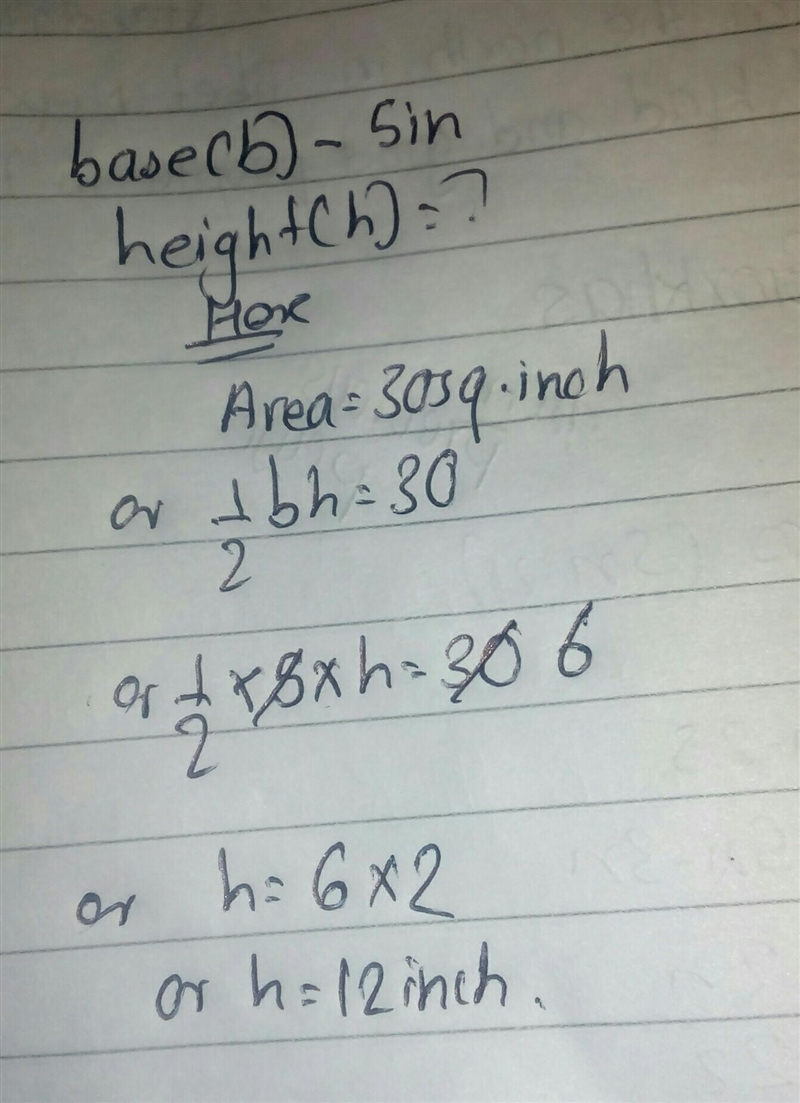 base(b) - 5in
height(h) = ?
Here
Area = 30sq.inch
or 1/2 bh = 30
or 1/2 × 5 × h = 30 6
or h = 6 × 2
or h = 12 inch.